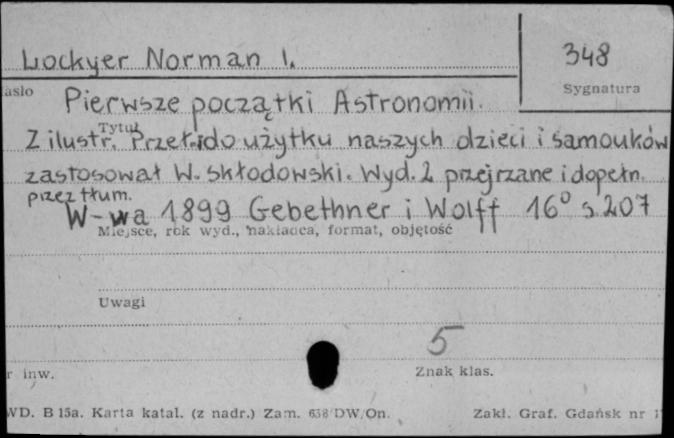 Lockyer Norman I.
348
asło
Sygnatura
Pierwsze początki Astronomii.
Tytuł
Z ilustr. Przeł. i do użytku naszych dzieci i samouków
zastosował W. Skłodowski. Wyd. 2 przejrzane i dopełn.
przez tłum.
W-wa 1899 Gebethner i Wolff 16° s. 207
Miejsce, rok wyd., nakładca, format, objętość
Uwagi
5
r inw.
Znak klas.
WD. B 15a. Karta katal. (z nadr.) Zam. 638/DW/On.
Zakł. Graf. Gdańsk nr 1